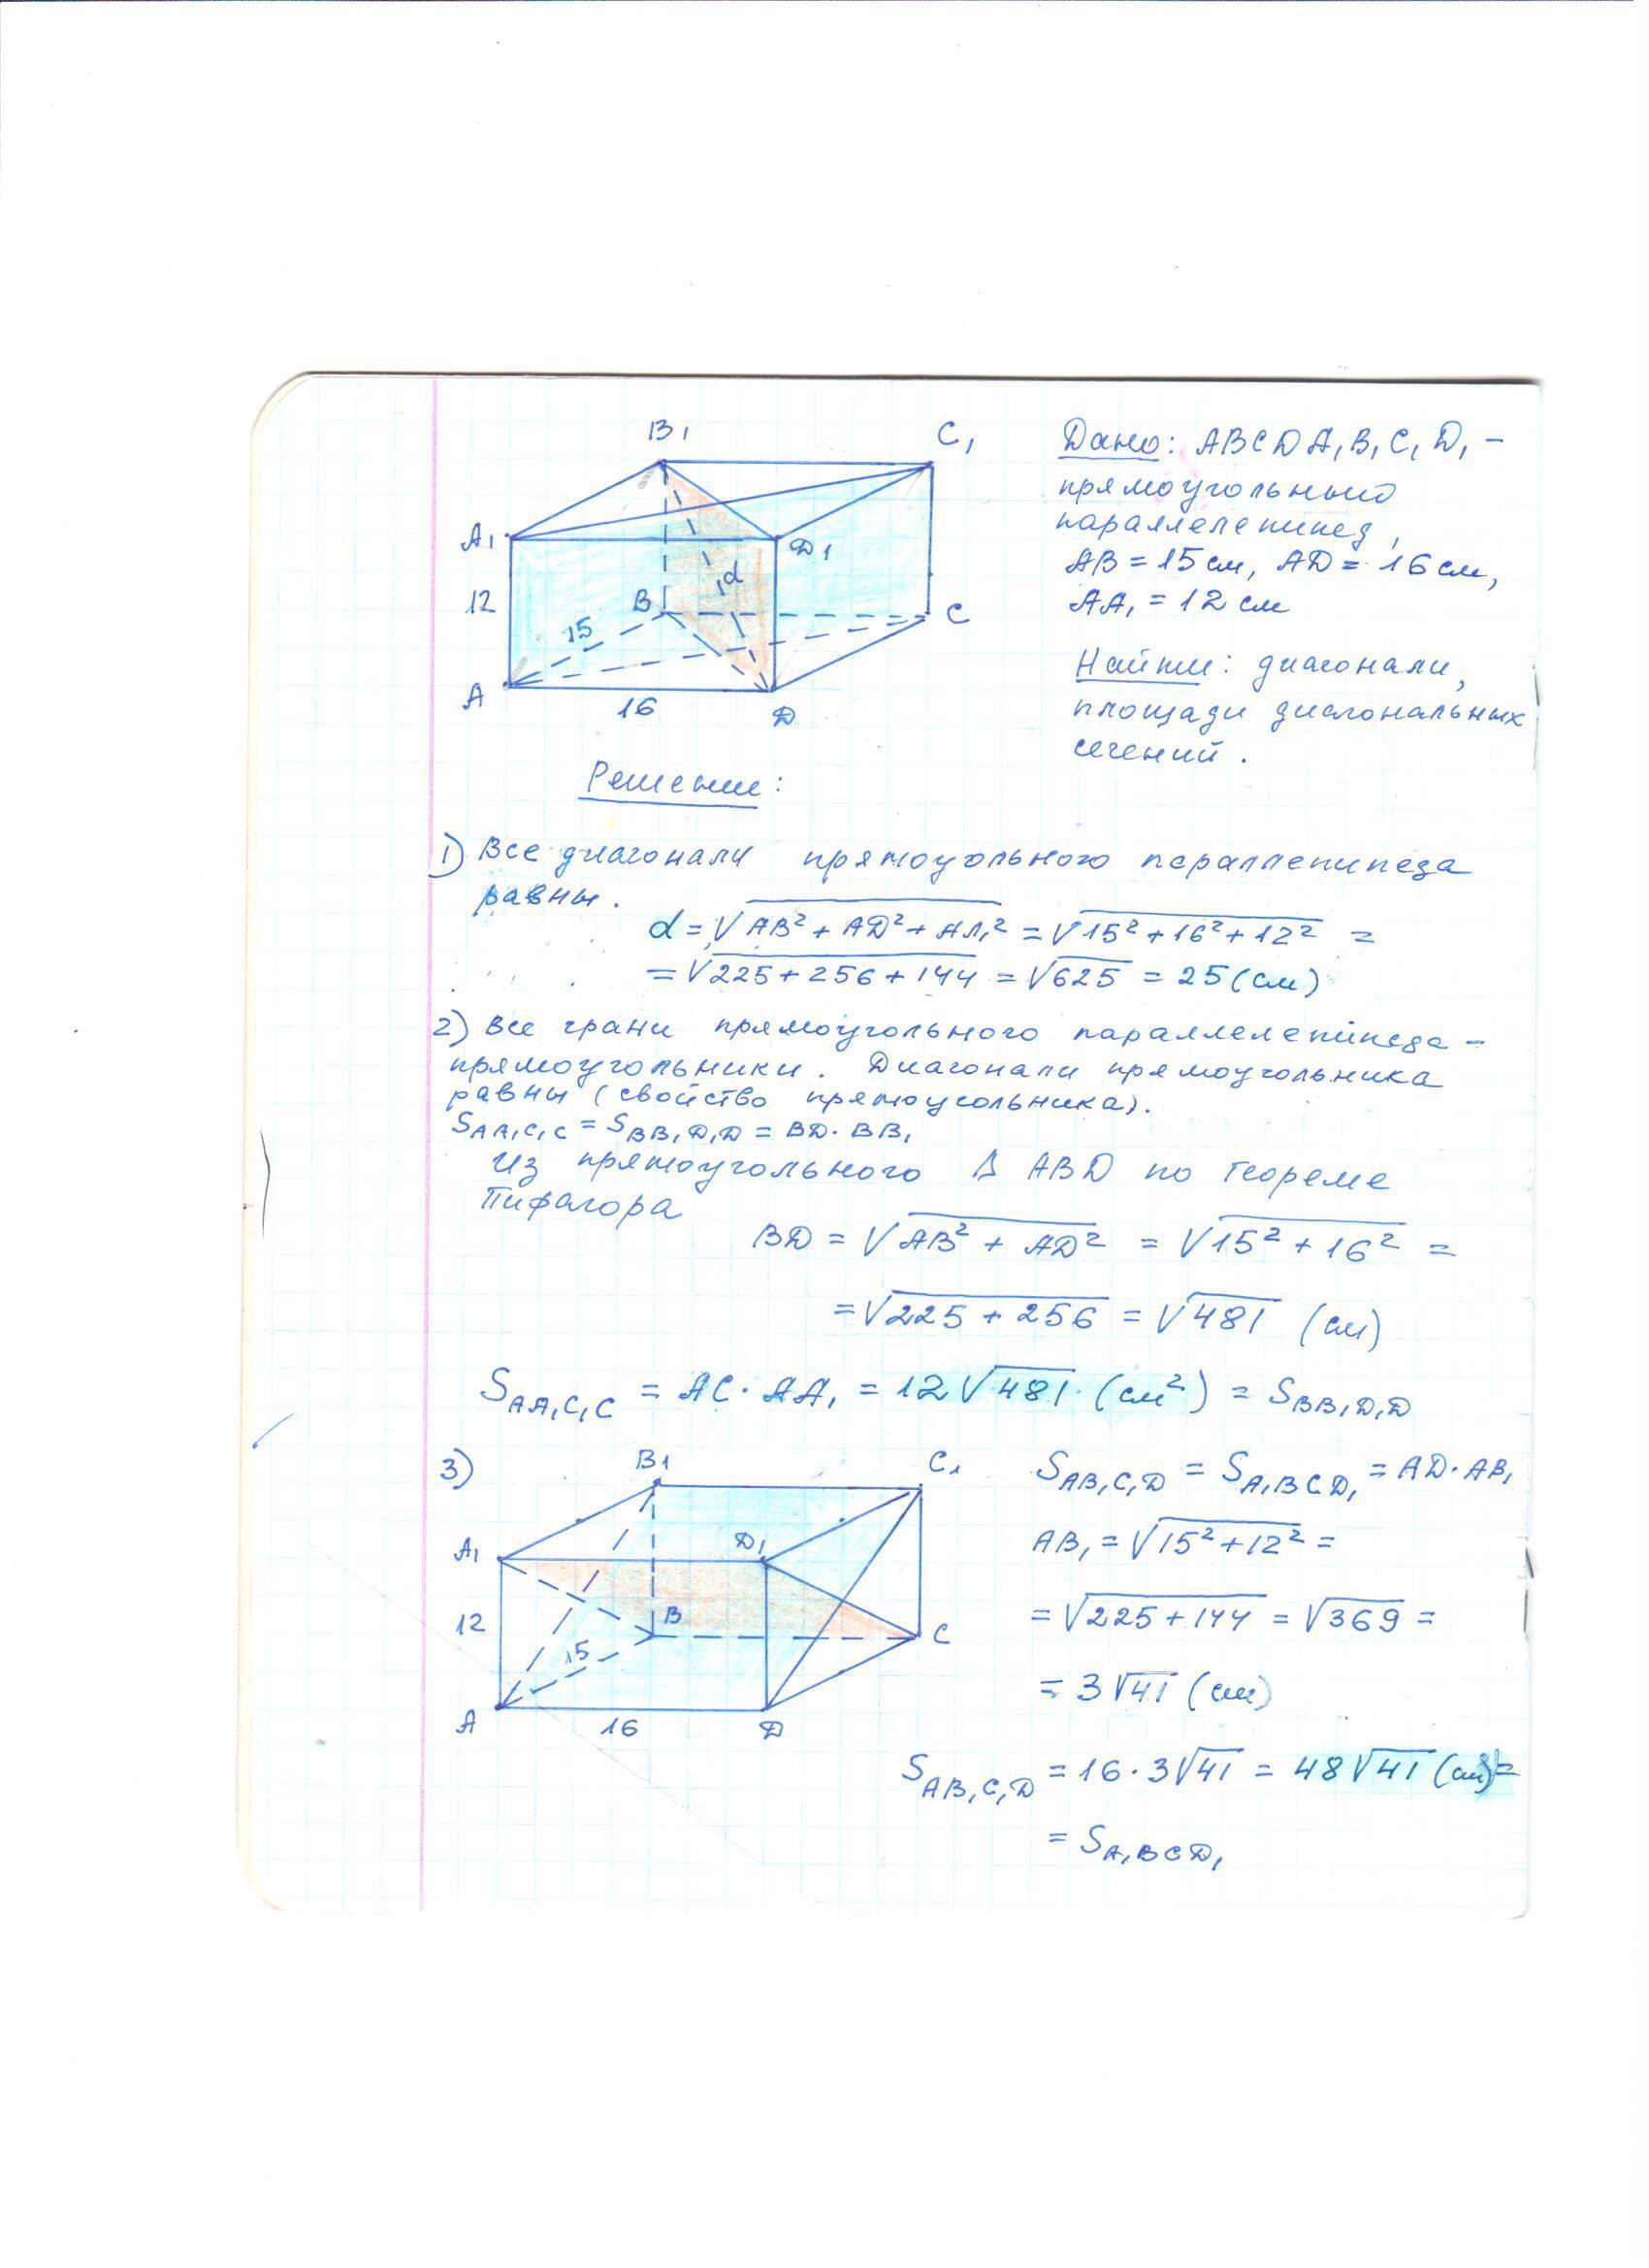 B₁ C₁
A₁ D₁
d
12 B C
15
A 16 D
Дано: ABCDA₁B₁C₁D₁ –
прямоугольный
параллелепипед,
AB = 15 см, AD = 16 см,
AA₁ = 12 см
Найти: диагонали,
площади диагональных
сечений.
Решение:
1) Все диагонали прямоугольного параллепипеда
равны.
d = √AB² + AD² + AA₁² = √15² + 16² + 12² =
= √225 + 256 + 144 = √625 = 25 (см)
2) Все грани прямоугольного параллелепипеда –
прямоугольники. Диагонали прямоугольника
равны (свойство прямоугольника).
S_AA₁C₁C = S_BB₁D₁D = BD · BB₁
Из прямоугольного Δ ABD по теореме
Пифагора
BD = √AB² + AD² = √15² + 16² =
= √225 + 256 = √481 (см)
S_AA₁C₁C = AC · AA₁ = 12√481 (см²) = S_BB₁D₁D
3) B₁ C₁
A₁ D₁
12 B C
15
A 16 D
S_AB₁C₁D = S_A₁BCD₁ = AD · AB₁
AB₁ = √15² + 12² =
= √225 + 144 = √369 =
= 3√41 (см)
S_AB₁C₁D = 16 · 3√41 = 48√41 (см²) =
= S_A₁BCD₁